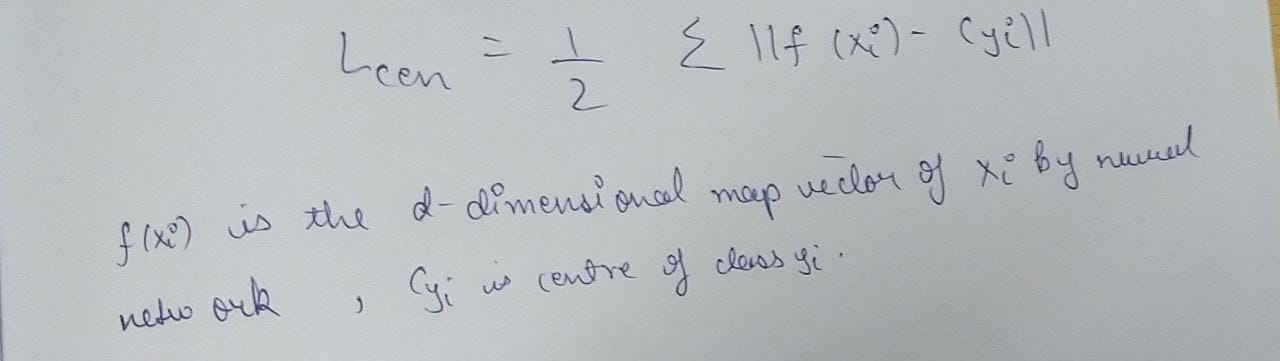 Lcen = 1/2 Σ ||f (xi) - Cyi||
f(xi) is the d-dimensional map vector of xi by neural
network , Cyi is centre of class yi.